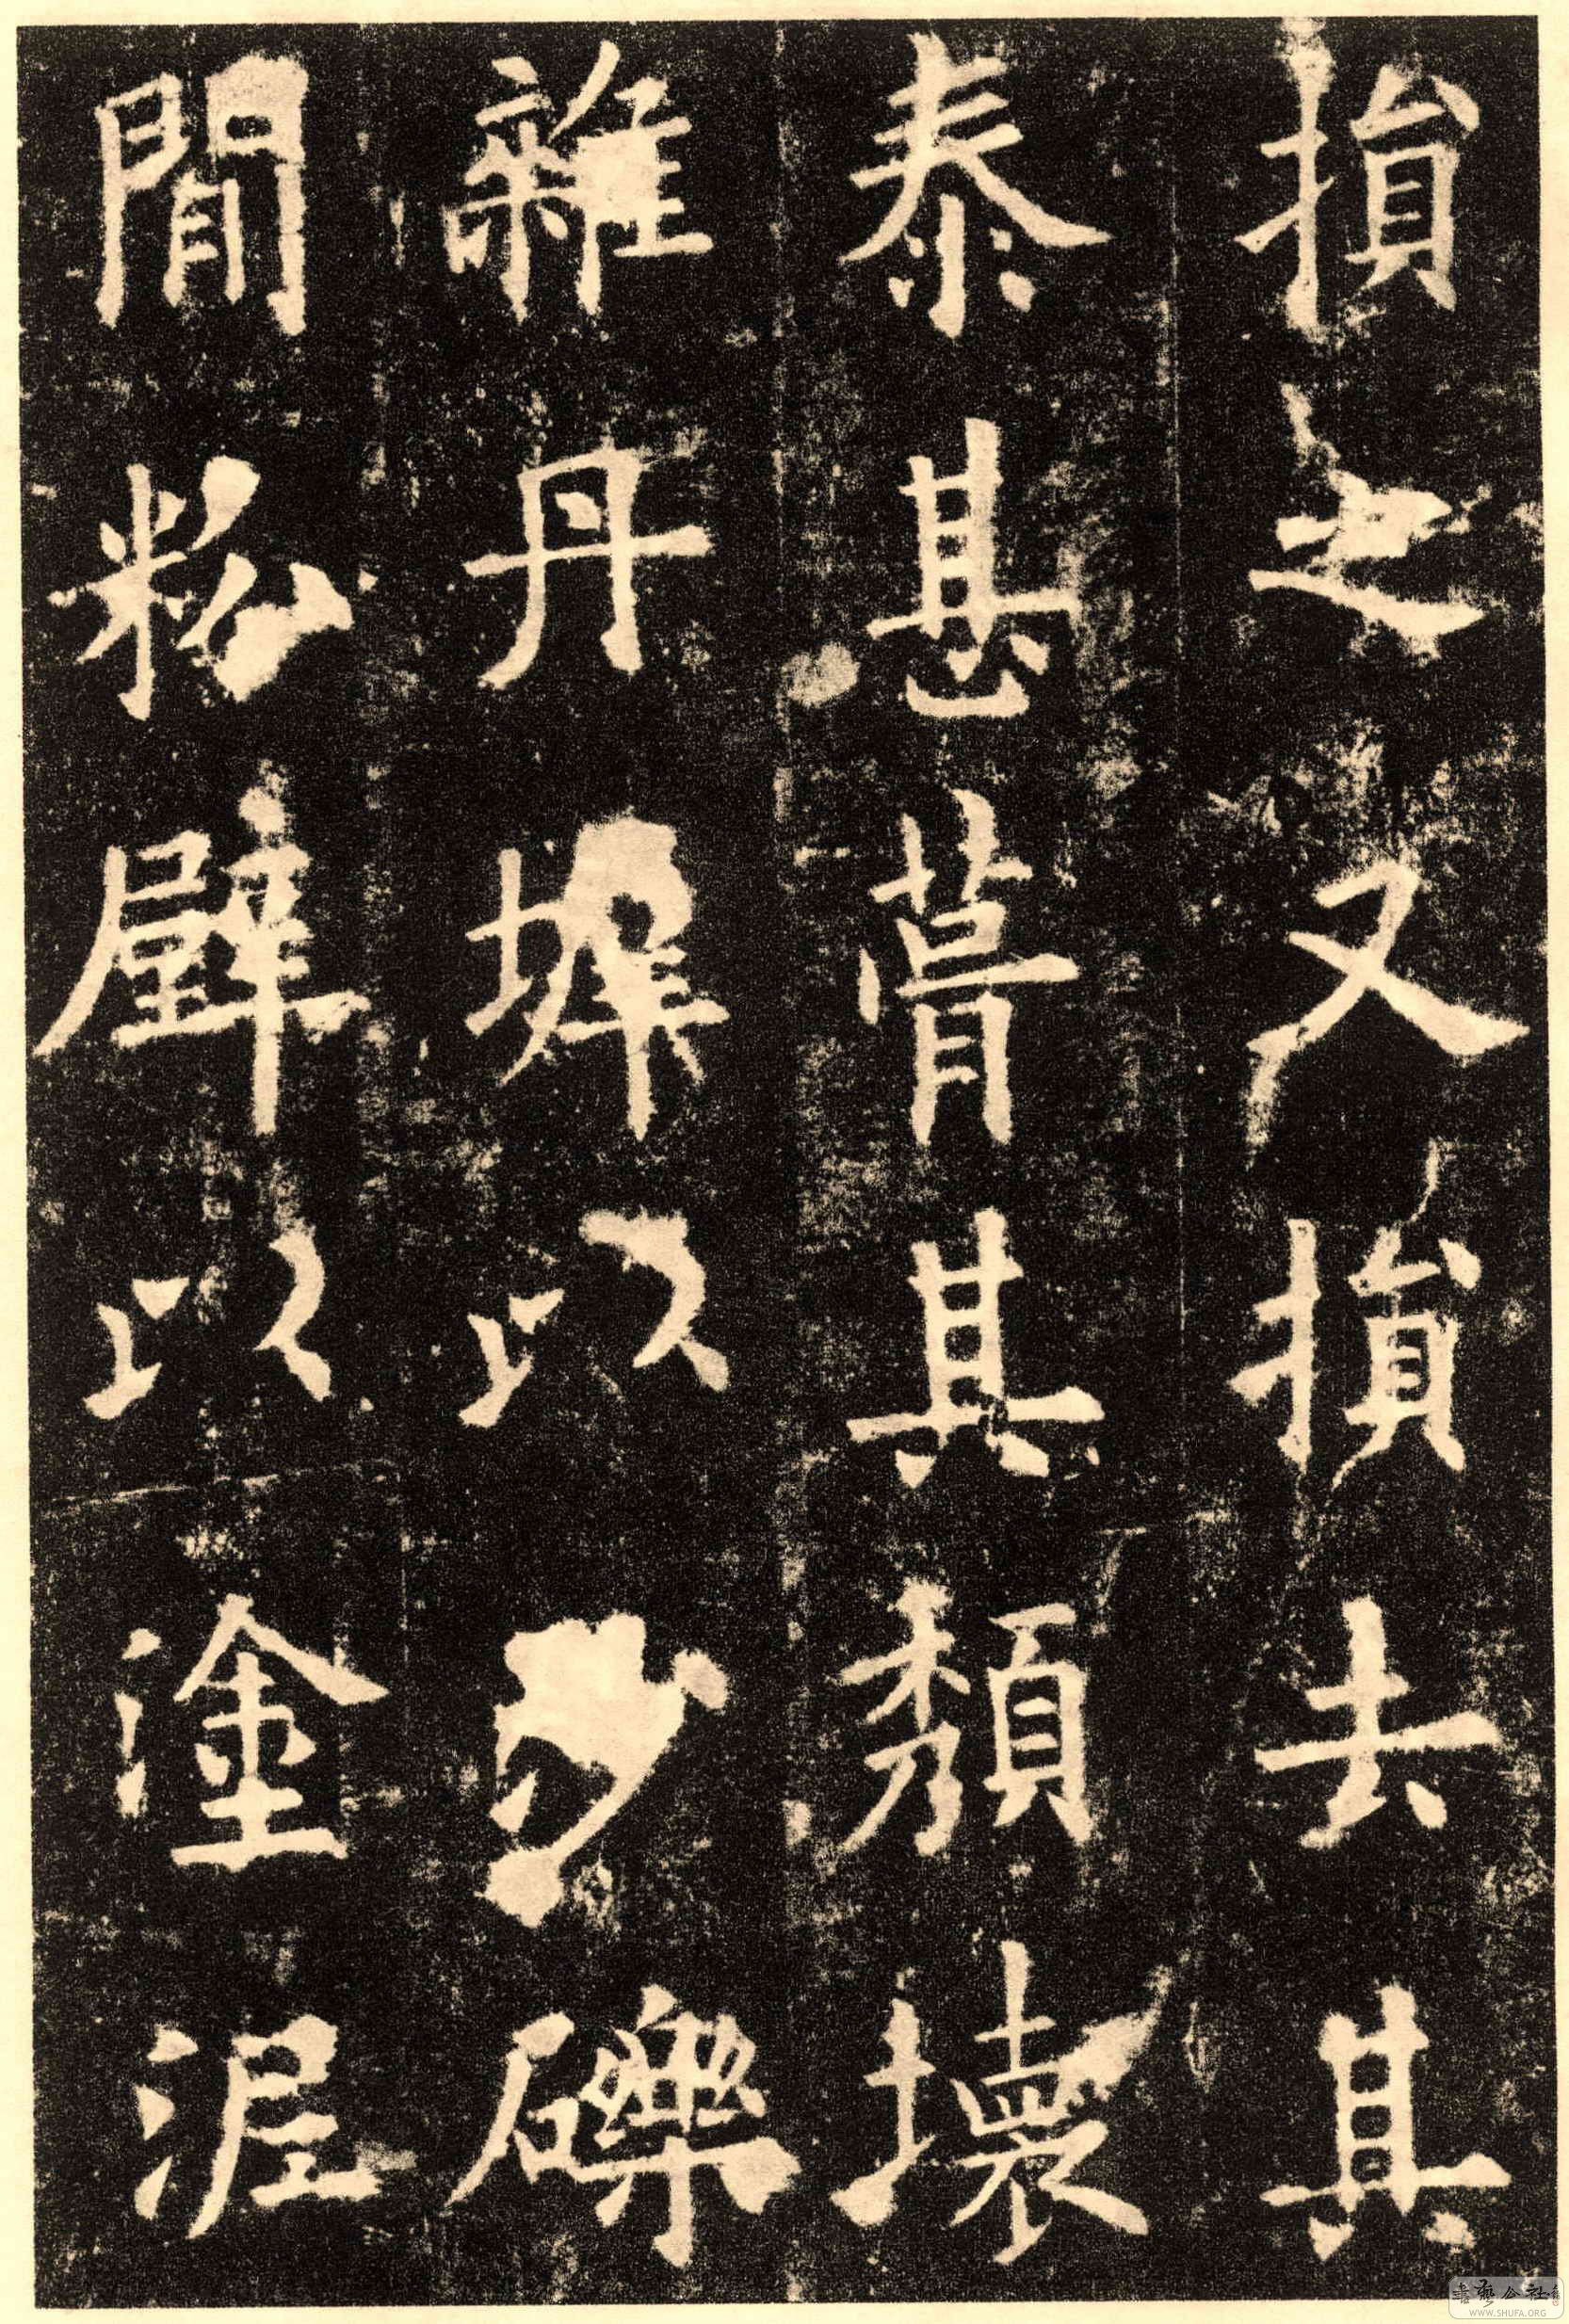 損之又損去其
泰甚葺其頹壞
雜丹墀以沙礫
間粉壁以塗泥
書藝公社
WWW.SHUFA.ORG